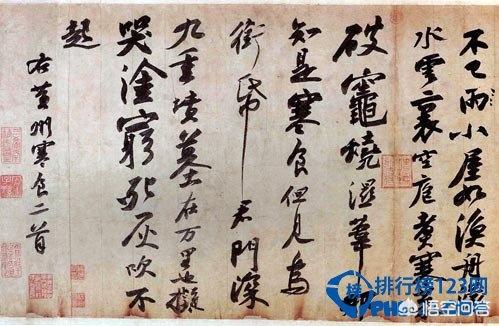 不已雨小屋如漁舟濛
水雲裏空庖煮寒
破竈燒濕葦那
知是寒食但見烏
銜帋君門深
九重墳墓在万里也擬
哭塗窮死灰吹不
起
右黄州寒食二首
排行榜123网
悟空问答